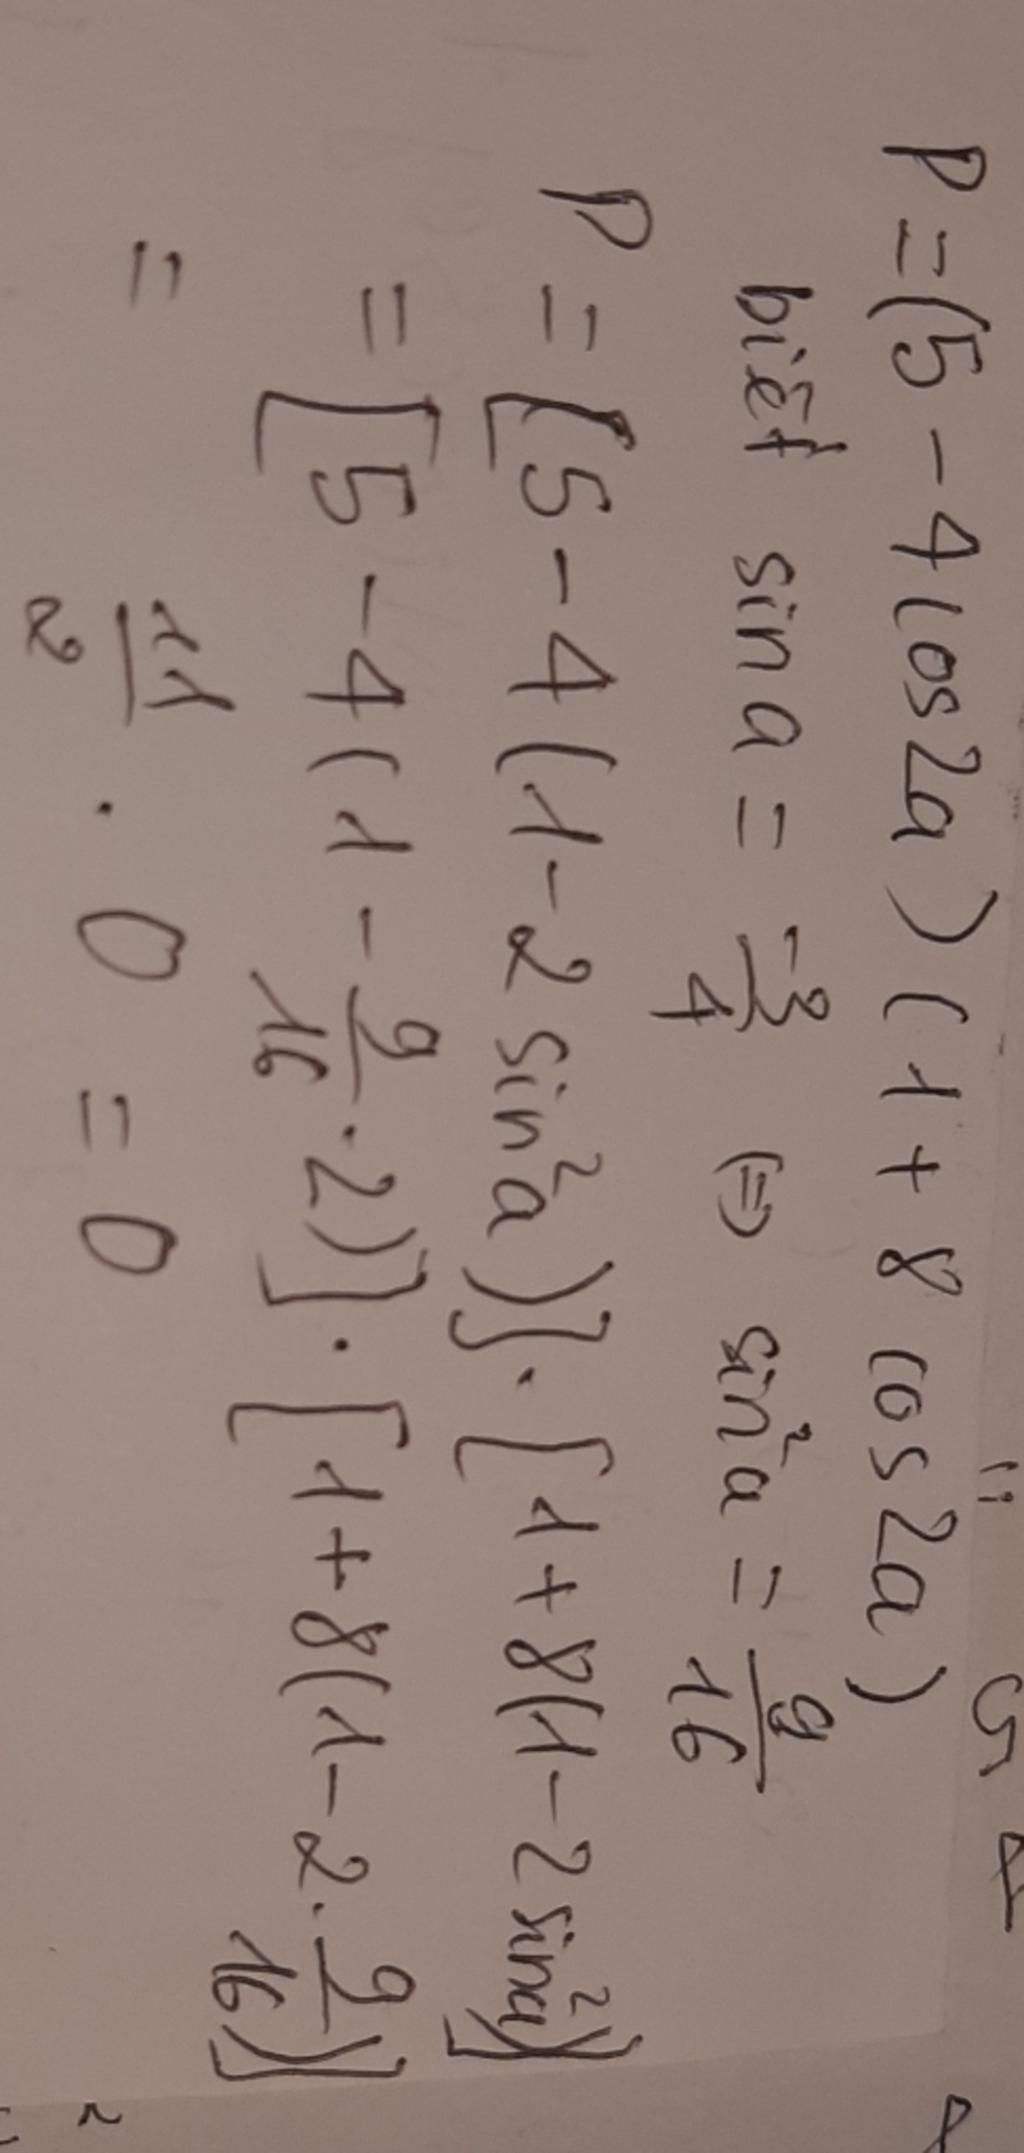 P = (5 - 4 cos2a) (1 + 8 cos2a)
biết sin a = -3/4 ⇔ sin²a = 9/16
P = [5 - 4(1 - 2 sin²a)] . [1 + 8(1 - 2 sin²a)]
= [5 - 4(1 - 9/16 . 2)] . [1 + 8(1 - 2 . 9/16)]
= 11/2 . 0 = 0